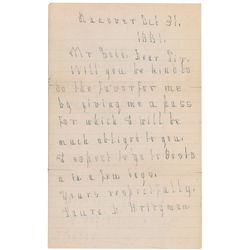 Hanover Oct 31.
1881.
Mr Bois. Dear Sir.
Will you be kind to
do the favor for me
by giving me a pass
for which I will be
much obliged to you.
I expect to go to Bosto
n in a few days.
Yours respectfully,
Laura D. Bridgman